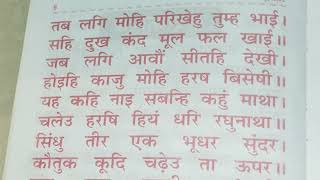 तब लगि मोहि परिखेहु तुम्ह भाई।
सहि दुख कंद मूल फल खाई॥
जब लगि आवौं सीतहि देखी।
होइहि काजु मोहि हरष बिसेषी॥
यह कहि नाइ सबन्हि कहुं माथा।
चलेउ हरषि हियं धरि रघुनाथा॥
सिंधु तीर एक भूधर सुंदर।
कौतुक कूदि चढ़ेउ ता ऊपर॥